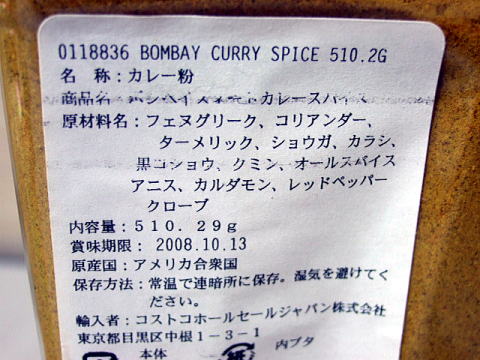 0118836 BOMBAY CURRY SPICE 510.2G
名 称：カレー粉
商品名： カレースパイス
原材料名：フェヌグリーク、コリアンダー、
ターメリック、ショウガ、カラシ、
黒コショウ、クミン、オールスパイス
アニス、カルダモン、レッドペッパー
クローブ
内容量：５１０．２９ｇ
賞味期限： 2008.10.13
原産国：アメリカ合衆国
保存方法：常温で連暗所に保存。湿気を避けてく
ださい。
輸入者：コストコホールセールジャパン株式会社
東京都目黒区中根１－３－１
本体 内ブタ